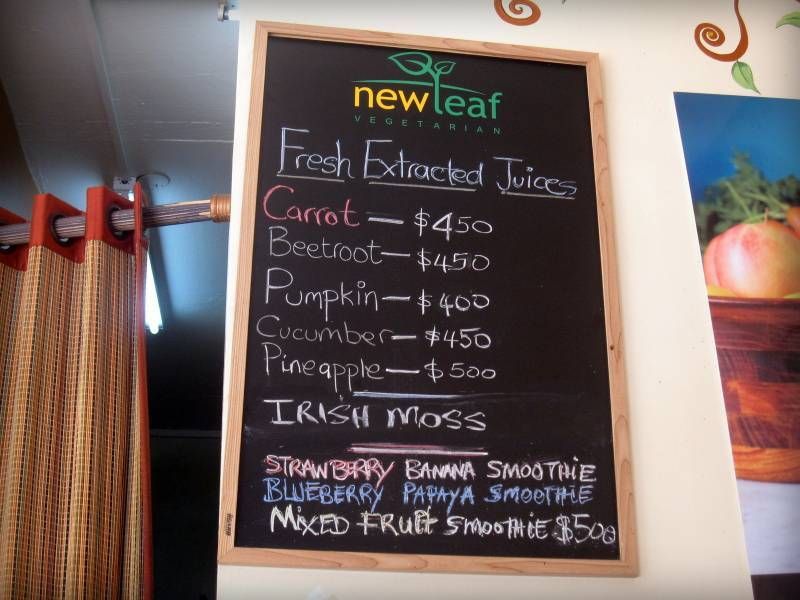 new leaf
VEGETARIAN
Fresh Extracted Juices
Carrot — $450
Beetroot — $450
Pumpkin — $400
Cucumber — $450
Pineapple — $500
IRISH MOSS
STRAWBERRY BANANA SMOOTHIE
BLUEBERRY PAPAYA SMOOTHIE
MIXED FRUIT SMOOTHIE $500